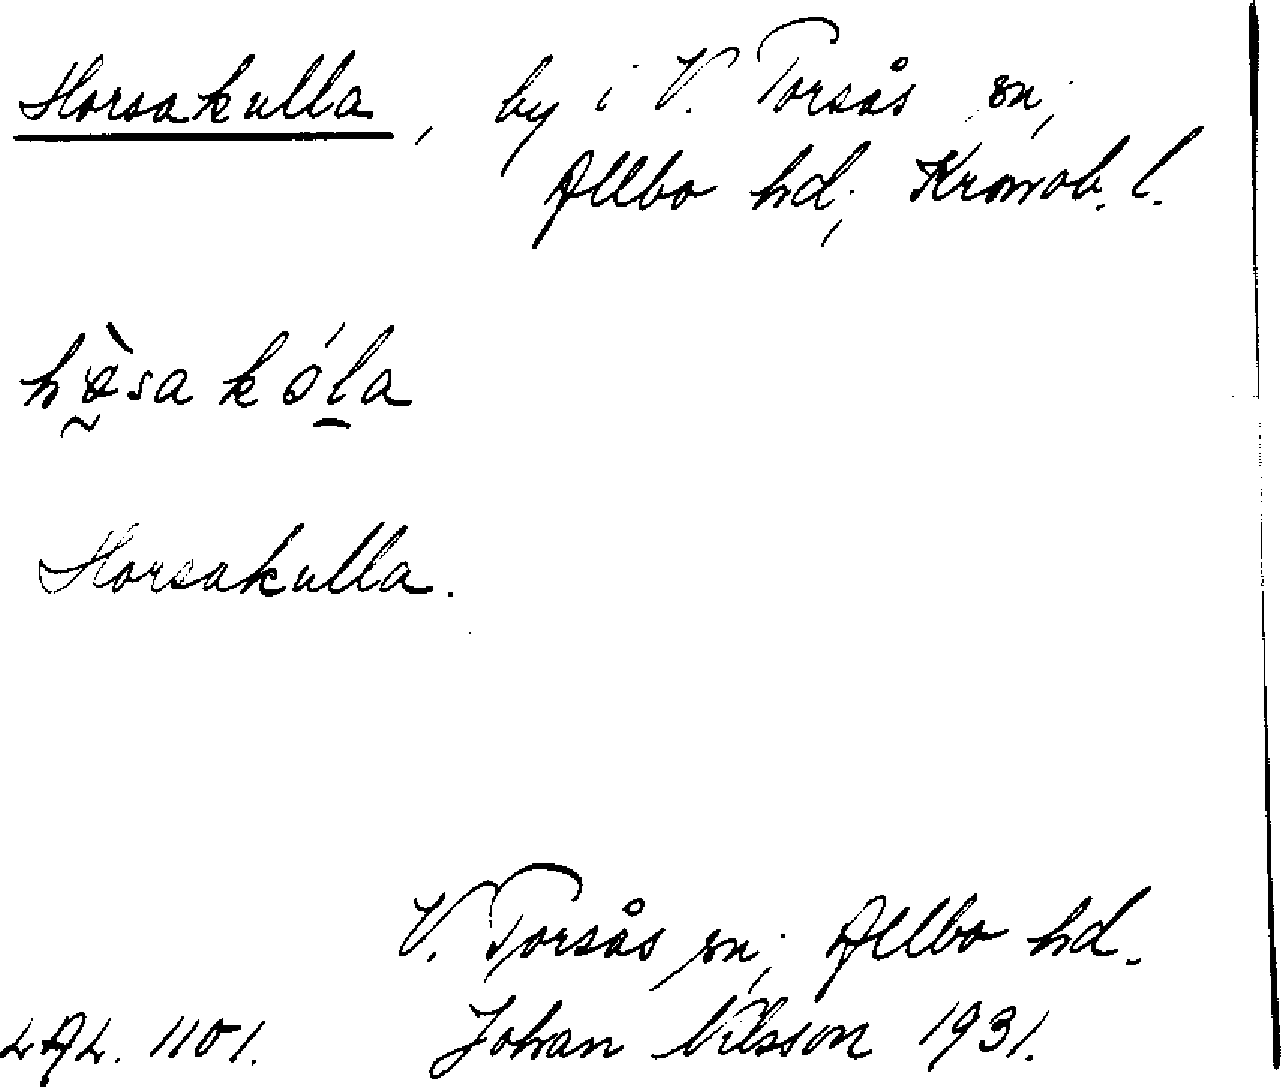 Horsakulla, by i V. Torsås sn.,
Allbo hd., Kronob. l.
hò̰sa kól̲a
Horsakulla.
V. Torsås sn., Allbo hd.
LAL. 1101. Johan Nilsson 1931.